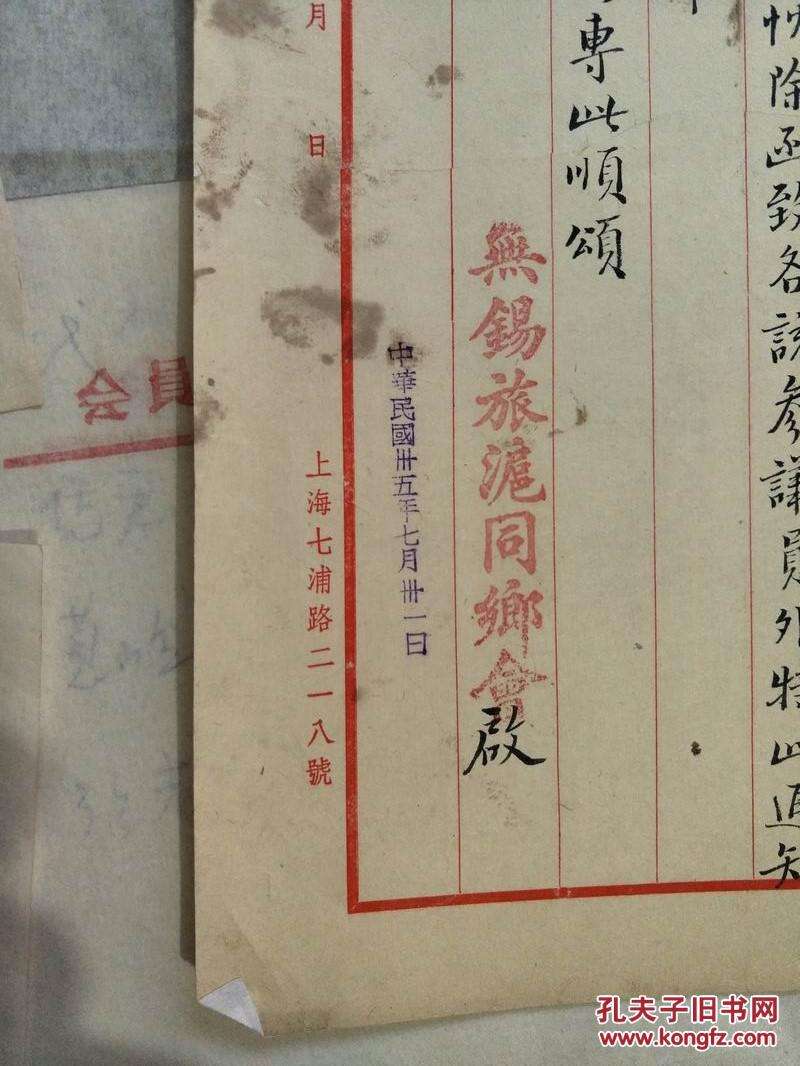 除函致各該參議員外特此通知
專此順頌
無錫旅滬同鄉會啟
中華民國卅五年七月卅一日
月 日
上海七浦路二一八號
会員
孔夫子旧书网
www.kongfz.com